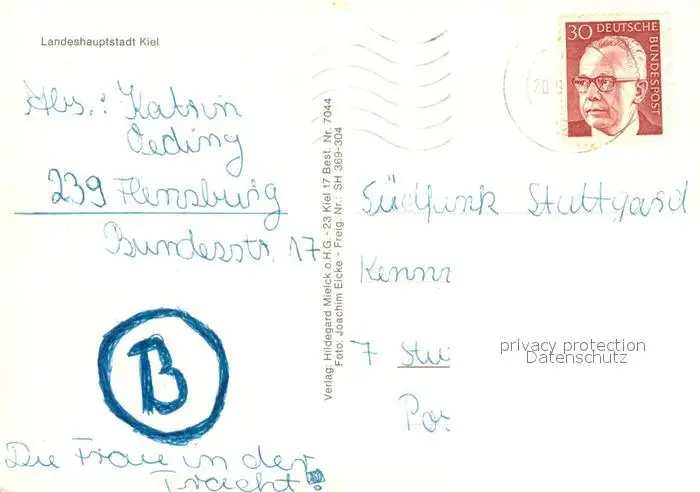 Landeshauptstadt Kiel
Abs.: Katrin
Oeding
239 Flensburg
Bundesstr. 17
B
Die Frau in der
Tracht!
Verlag: Hildegard Mielck o.H.G. - 23 Kiel 17 Best. Nr. 7044
Foto: Joachim Eicke - Freig. Nr.: SH 369-304
30 DEUTSCHE
BUNDESPOST
20.9
Südfunk Stuttgard
Kenn
7 Stu
Po
privacy protection
Datenschutz